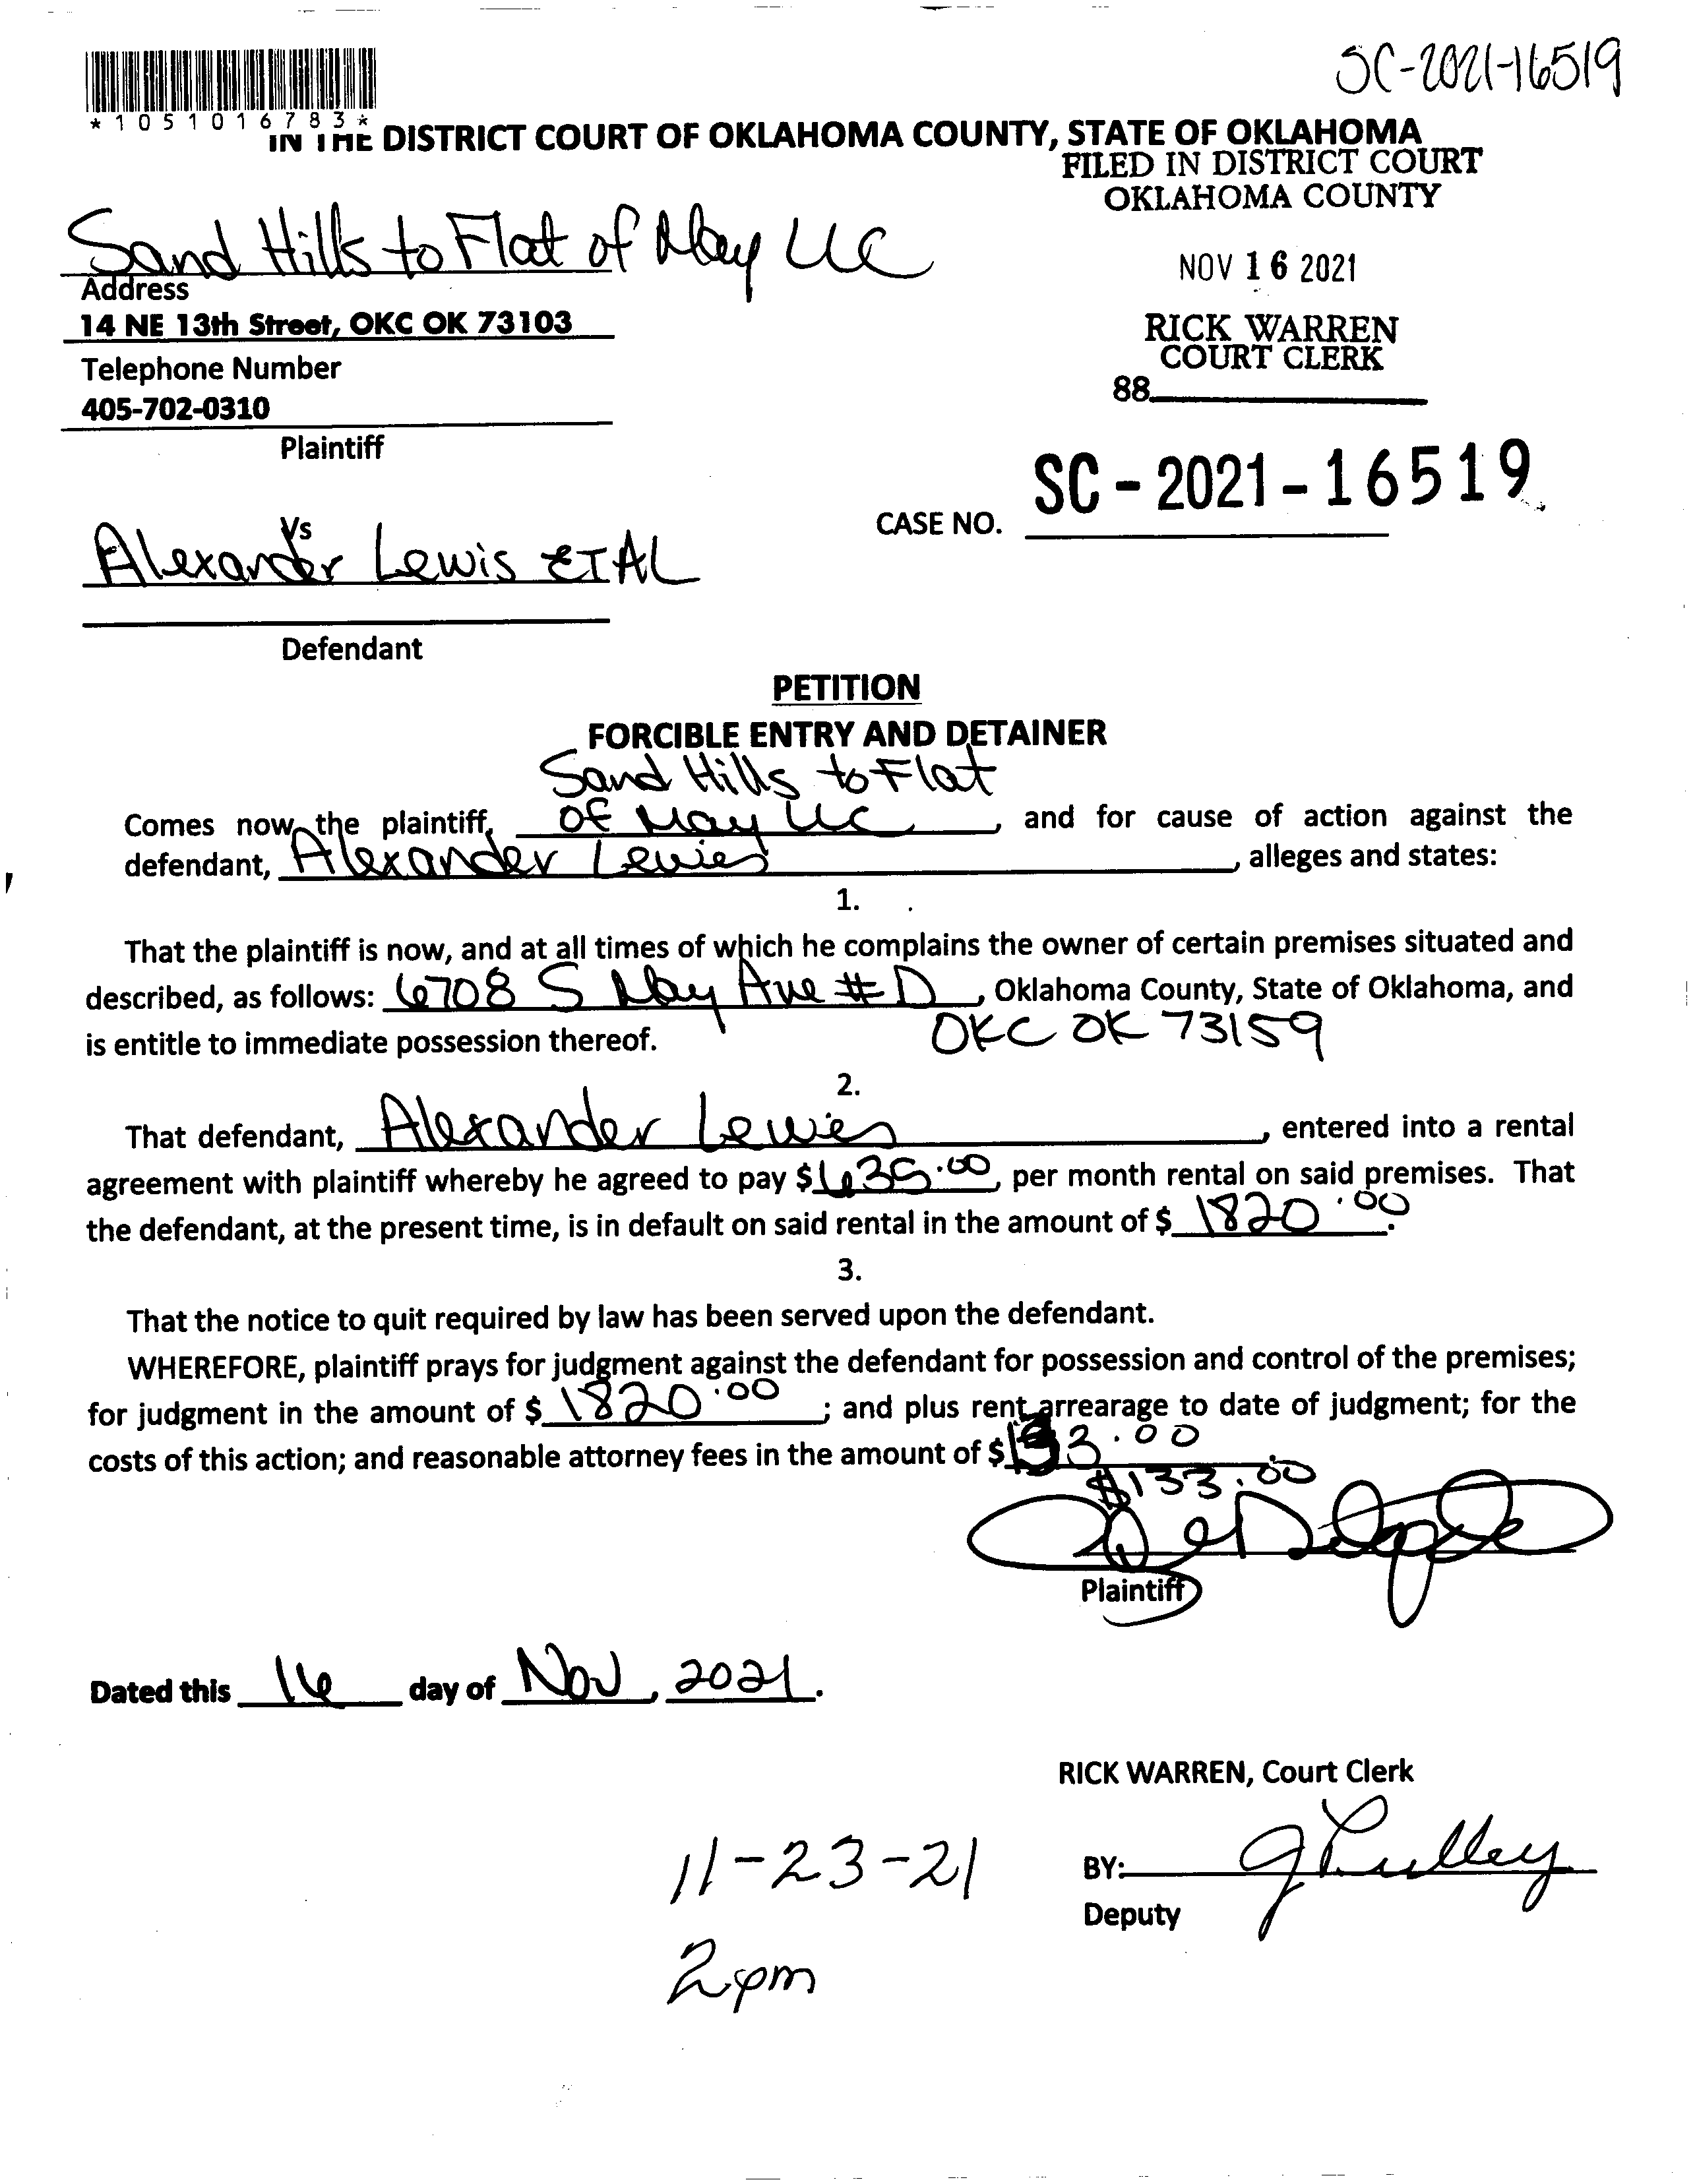 SC-2021-16519
*1051016783*
IN THE DISTRICT COURT OF OKLAHOMA COUNTY, STATE OF OKLAHOMA
FILED IN DISTRICT COURT
OKLAHOMA COUNTY
Sand Hills to Flat of May LLC
NOV 16 2021
Address
14 NE 13th Street, OKC OK 73103
RICK WARREN
COURT CLERK
Telephone Number
88
405-702-0310
Plaintiff
SC-2021-16519
CASE NO.
Vs
Alexander Lewis ET AL
Defendant
PETITION
FORCIBLE ENTRY AND DETAINER
Sand Hills to Flat
Comes now, the plaintiff, of May LLC, and for cause of action against the
defendant, Alexander Lewis, alleges and states:
1.
That the plaintiff is now, and at all times of which he complains the owner of certain premises situated and
described, as follows: 6708 S May Ave # D, Oklahoma County, State of Oklahoma, and
is entitle to immediate possession thereof. OKC OK 73159
2.
That defendant, Alexander Lewis, entered into a rental
agreement with plaintiff whereby he agreed to pay $635.00, per month rental on said premises. That
the defendant, at the present time, is in default on said rental in the amount of $ 1820.00.
3.
That the notice to quit required by law has been served upon the defendant.
WHEREFORE, plaintiff prays for judgment against the defendant for possession and control of the premises;
for judgment in the amount of $ 1820.00; and plus rent arrearage to date of judgment; for the
costs of this action; and reasonable attorney fees in the amount of $
$133.00
Plaintiff
Dated this 16 day of Nov, 2021.
RICK WARREN, Court Clerk
11-23-21
BY:
Deputy
2pm